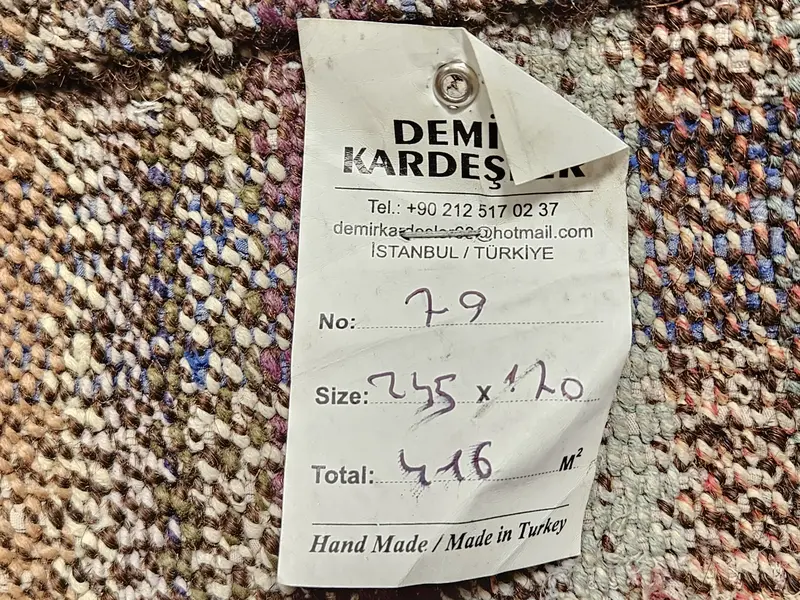 DEMİ
KARDEŞLER
Tel.: +90 212 517 02 37
@hotmail.com
İSTANBUL / TÜRKİYE
No: 79
Size: 245 x 170
Total: 416 M²
Hand Made / Made in Turkey